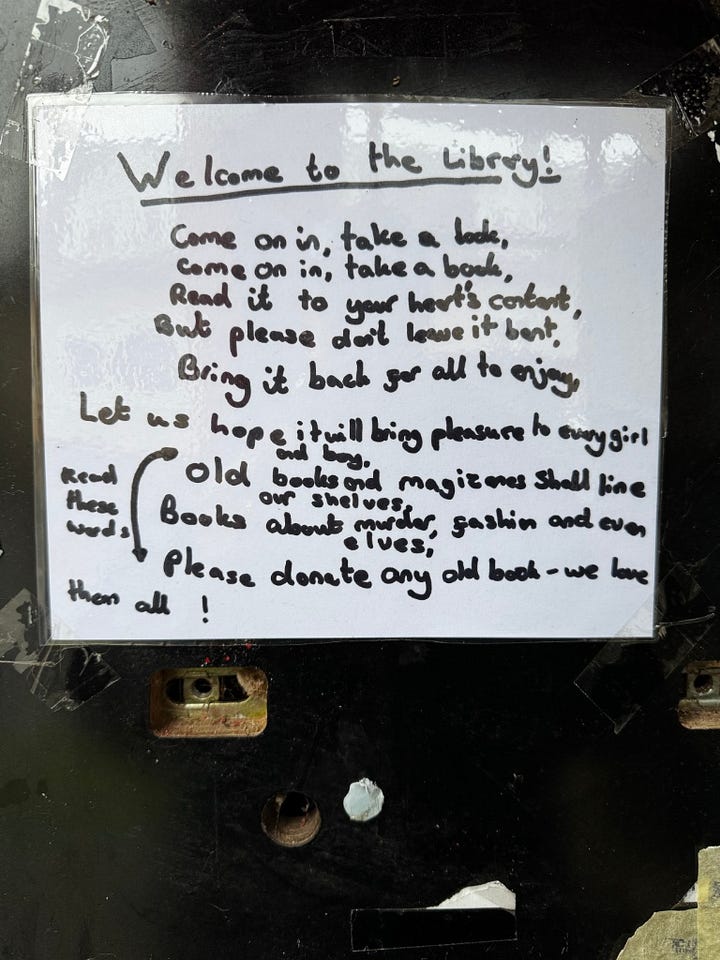 Welcome to the Librery!
Come on in, take a look,
Come on in, take a book,
Read it to your heart's content,
But please don't leave it bent,
Bring it back for all to enjoy,
Let us hope it will bring pleasure to every girl
and boy,
Old books and magizenes Shall line
our shelves,
Books about murder, fashion and even
elves,
Please donate any old book - we love
them all !
Read
these
words